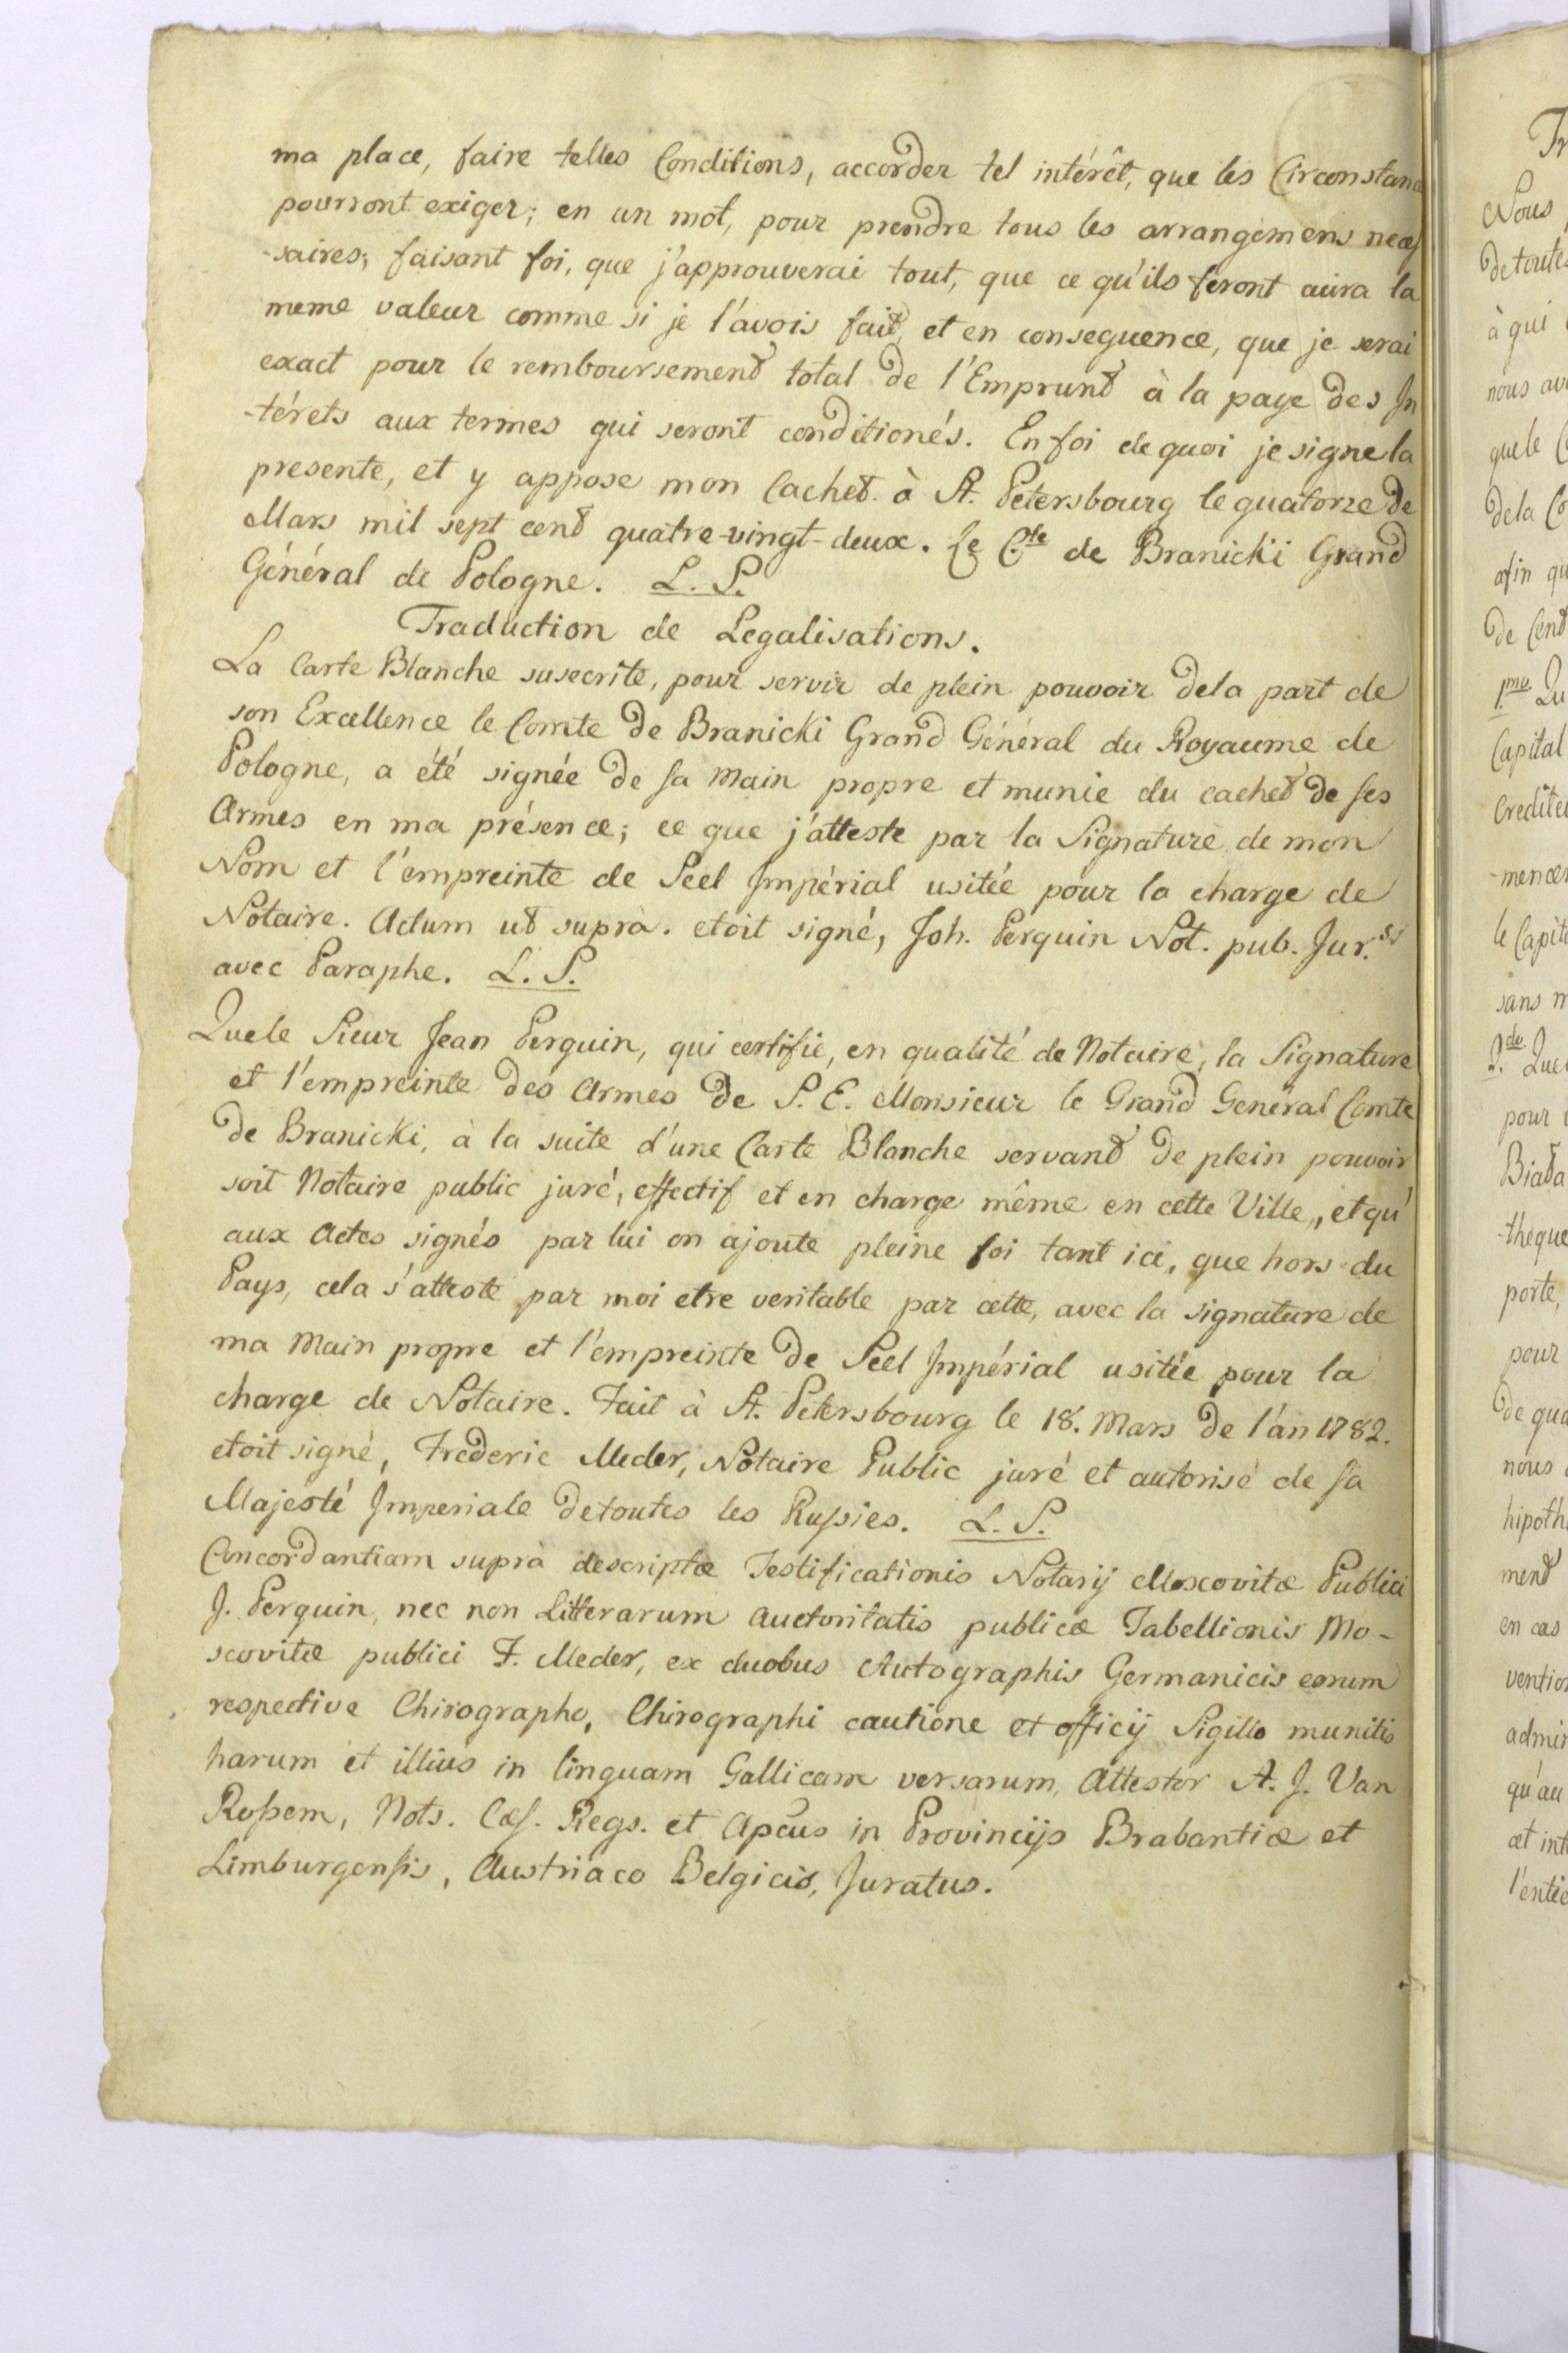 ma place, faire telles Conditions, accorder tel intérêt, que les Circonstanc
pourront exiger; en un mot, pour prendre tous les arrangemens neces
-saires; faisant foi, que j'approuverai tout, que ce qu'ils feront aura la
meme valeur comme si je l'avois fait, et en consequence, que je serai
exact pour le remboursement total de l'Emprunt à la paye des In
-térets aux termes qui seront conditionés. En foi de quoi je signe la
presente, et y appose mon Cachet à St. Petersbourg le quatorze de
Mars mil sept cent quatre-vingt-deux. Le Cte de Branickii Grand
Général de Pologne. L. S.
Traduction de Legalisations.
La Carte Blanche suscrite, pour servir de plein pouvoir dela part de
son Excellence le Comte de Branicki Grand Général du Royaume de
Pologne, a été signée de sa Main propre et munie du cachet de ses
Armes en ma présence; ce que j'atteste par la Signature de mon
Nom et l'empreinte de Seel Impérial usitée pour la charge de
Notaire. Actum ut suprà. etoit signé, Joh. Perquin Not. pub. Jur.ss
avec Paraphe. L. S.
Quele Sieur Jean Perquin, qui certifie, en qualité de Notaire, la Signature
et l'empreinte des Armes de S. E. Monsieur le Grand General Comte
de Branicki, à la suite d'une Carte Blanche servant de plein pouvoir
soit Notaire public juré, effectif et en charge même en cette Ville, et qu'
aux Actes signés par lui on ajoute pleine foi tant ici, que hors du
Pays, cela s'atteste par moi etre veritable par cette, avec la signature de
ma Main propre et l'empreinte de Seel Impérial usitée pour la
charge de Notaire. Fait à St. Petersbourg le 18. Mars de l'an 1782.
etoit signé, Frederic Meder, Notaire Public juré et autorisé de sa
Majesté Imperiale detoutes les Russies. L. S.
Concordantiam suprà descriptæ Testificationis Notarij Moscovitæ Publici
J. Perquin, nec non Litterarum auctoritatis publicæ Tabellionis Mo-
scovitæ publici F. Meder, ex duobus Autographis Germanicis eorum
respective Chirographo, Chirographi cautione et officij Sigillo munitis
harum et illius in linguam Gallicam versarum, Attestor A. J. Van
Rossem, Nots. Cæs. Regs. et Apcus in Provincijs Brabantiæ et
Limburgensis, Austriaco Belgicis, Juratus.
Tr
Nous
detoutes
à qui
nous av
quele C
dela Co
afin qu
de Cent
1.mo Qu
Capital
Credite
-mencer
le Capit
sans m
2.do Que
pour
-theque
porte,
pour
de qua
nous
hipoth
ment
en cas
vention
admin
qu'au
et int
l'entie